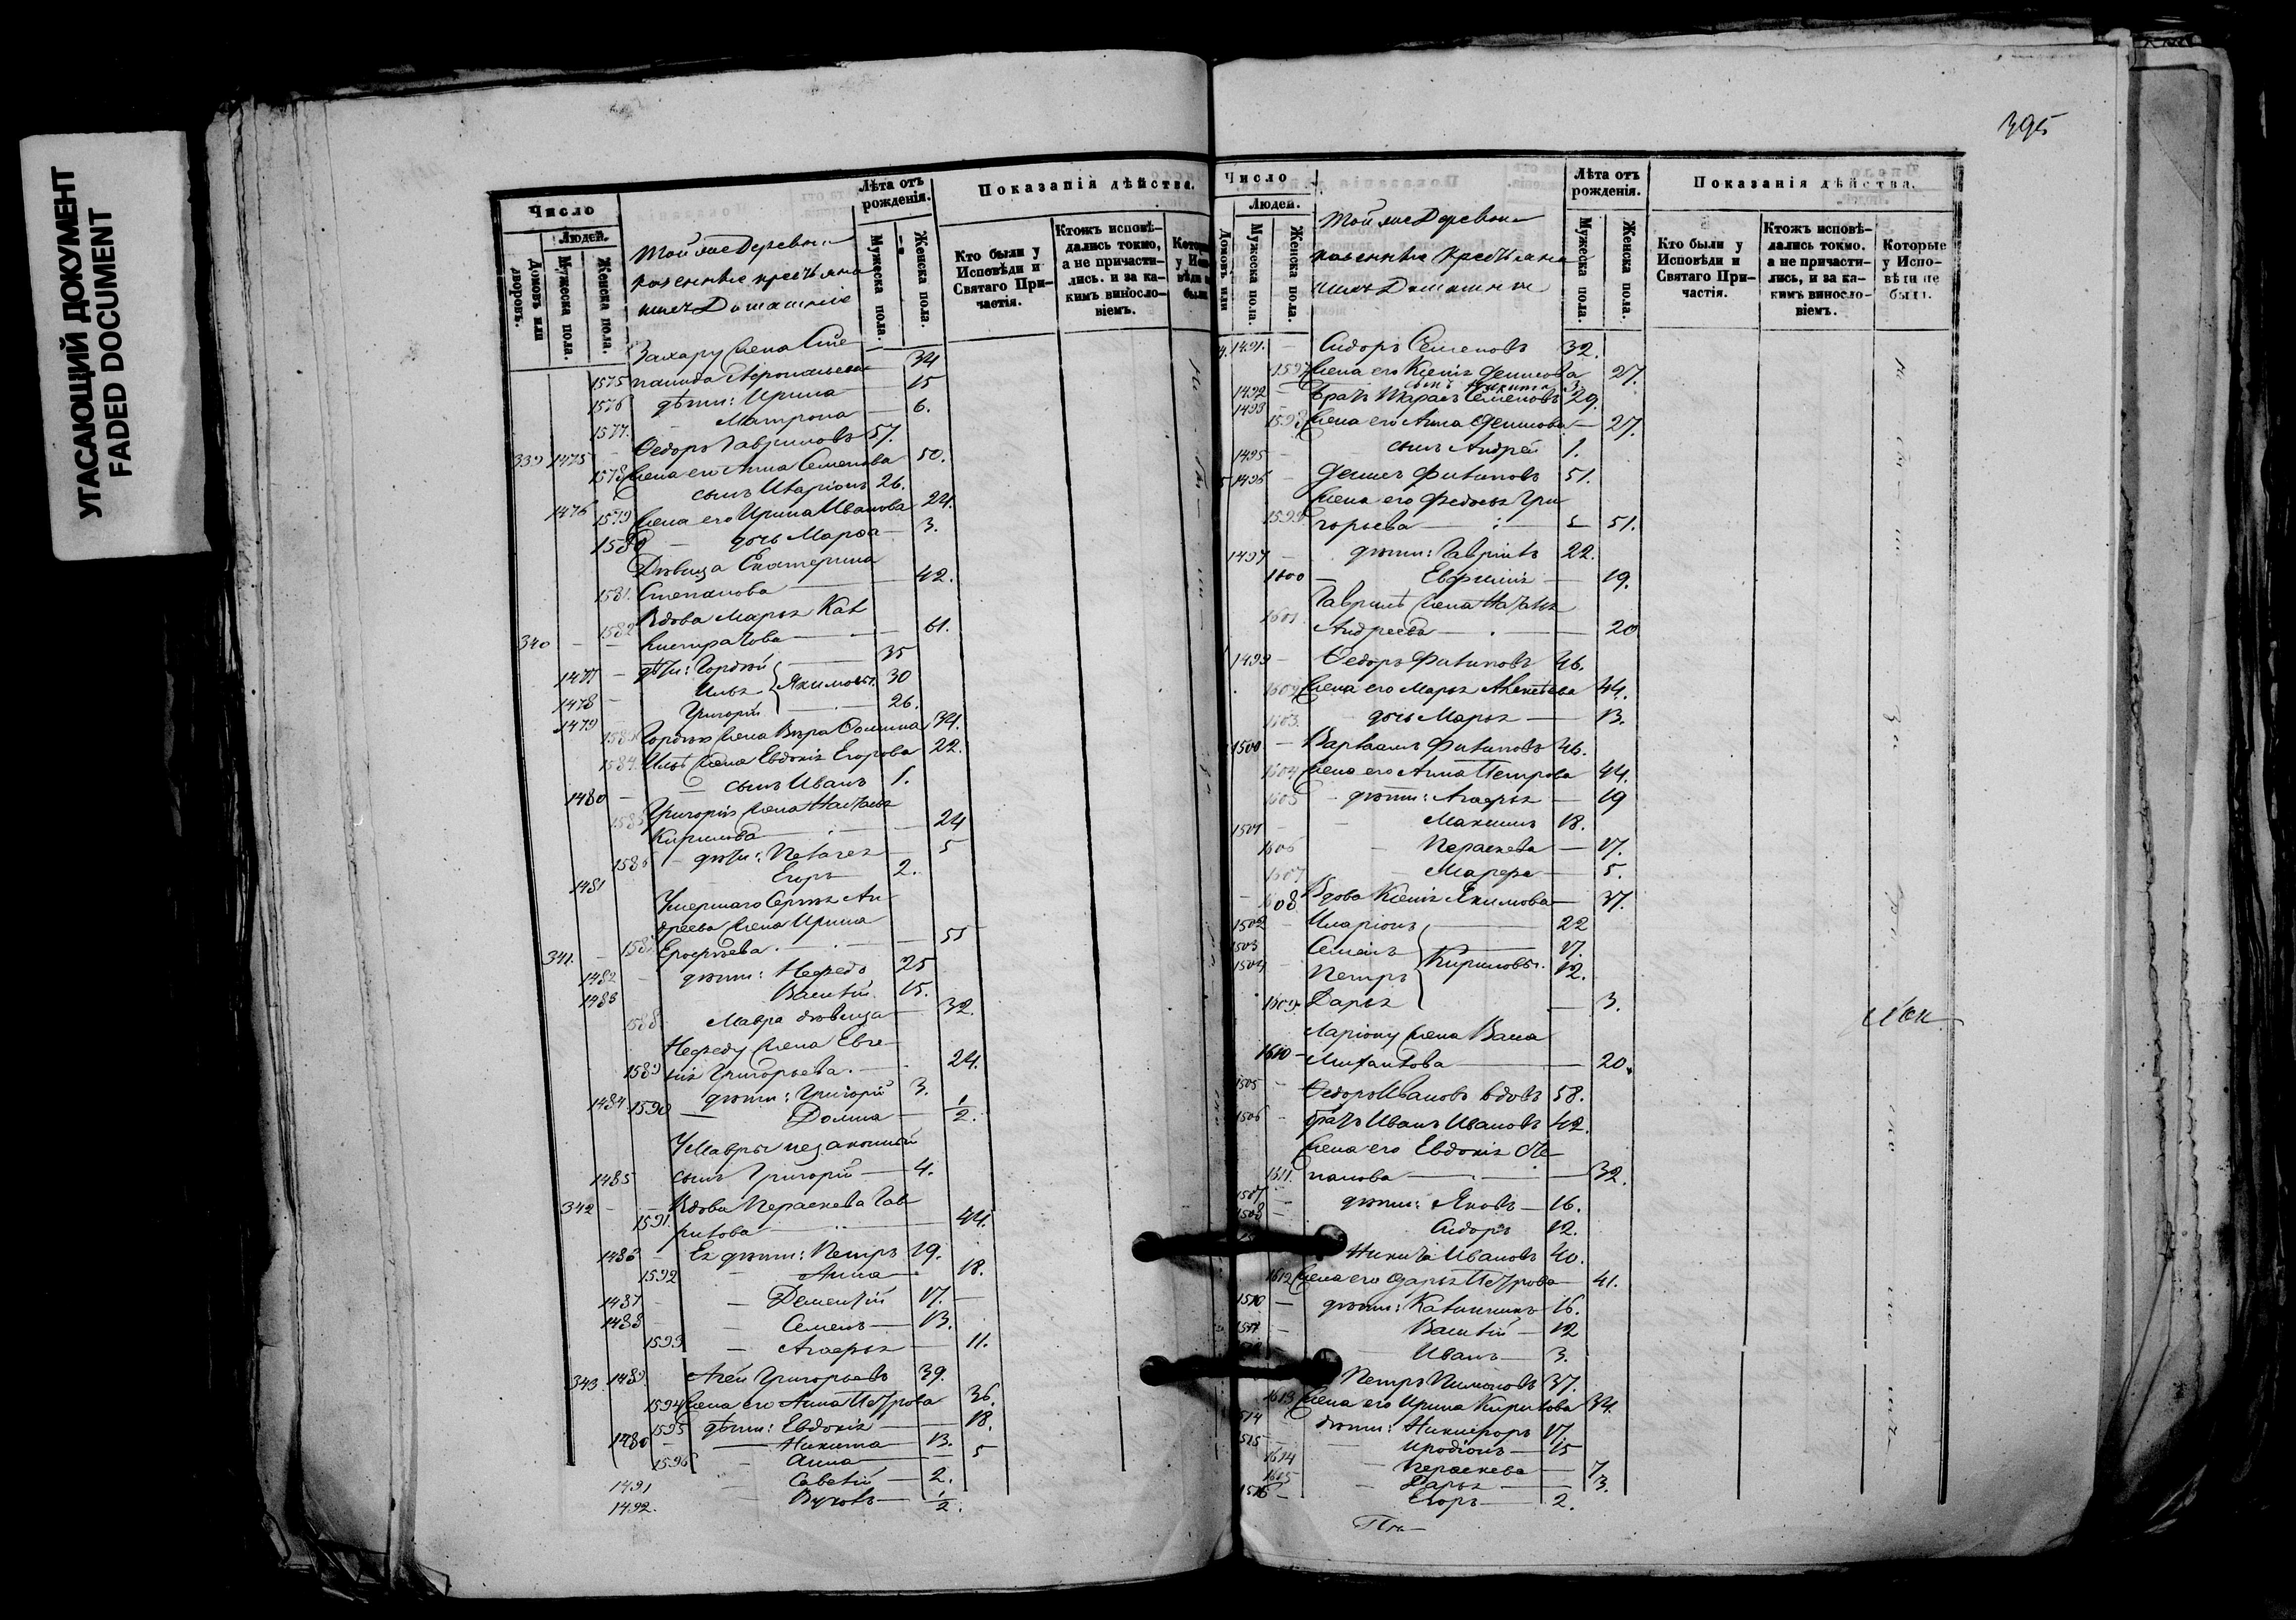 УГАСАЮЩИЙ ДОКУМЕНТ
FADED DOCUMENT
395
Число
Людей.
Домовъ или дворовъ.
Мужеска пола.
Женска пола.
Той же Деревни
казенные крестьяне
ихъ Домашніе
Лѣта отъ рожденія.
Мужеска пола.
Женска пола.
Показанія дѣйства.
Кто были у Исповѣди и Святаго Причастія.
Ктожъ исповѣдались токмо, а не причастились. и за какимъ винословіемъ.
Захару жена Сте
1575 панида 34
1576 дѣти: Ирина — 15
1577. Матрона — 6.
339 1475 Ѳедоръ Гавриловъ 57.
1578 жена его Анна Семенова 50.
1476 сынъ Иларіонъ 26.
1579 жена его Ирина Иванова 24.
1580 — дочь Марѳа — 3.
Дѣвица Екатерина
1581. Степанова — 42.
Вдова Марья Кал
340 — 1582 листратова — 61.
1477 — дѣти: Гордѣй — 35
1478 — Илья Якимовы. 30
1479 Григорій 26.
1583 Гордѣя жена Вѣра Ѳомина 34.
1584. Ильѣ жена Евдокія Егорова 22.
1480 — сынъ Иванъ 1.
Григорія жена Наталья
1585 Кирилова — 24
1586 — дѣти: Пелагея — 5
1481 Егоръ 2.
Умершаго Сергѣя Ан
дреева жена Ирина
341. 1587 Ерофѣева — 55
1482 дѣти: Нефедъ 25
1483 Василій 15.
1588 Мавра дѣвица — 32.
Нефеду жена Евге
1589 нія Григорьева. — 24.
1484 дѣти: Григорій 3.
1590 — Домна — 1/2.
У Мавры незаконный
1485 сынъ Григорій — 4.
342 — Вдова Параскева Гав
1591. рилова — 44.
1486 — Ея дѣти: Петръ 19.
1592 — Анна — 18.
1487 — Дементій 17. —
1488 — Семенъ — 13.
1593 — Агафья — 11.
343. 1489 Агей Григорьевъ 39.
1594 жена его Анна Петрова 36.
1595 дѣти: Евдокія — 18.
1490 — Никита — 13.
1596 — Анна — 5
1491 — Савелій — 2.
1492. — — 1/2.
Число
Людей.
Домовъ или
Мужеска пола.
Женска пола.
Той же Деревни
казенные Крестьяне
ихъ Домашніе
Лѣта отъ рожденія.
Мужеска пола.
Женска пола.
Показанія дѣйства.
Кто были у Исповѣди и Святаго Причастія.
Ктожъ исповѣдались токмо. а не причастились, и за какимъ винословіемъ.
Которые у Исповѣди не были.
1491. — Сидоръ Семеновъ 32.
1597 жена его Ксенія Денисова 27.
сынъ Никита 3
1493 Братъ Тарасъ Семеновъ 29.
1598 жена его Анна Денисова — 27.
1495 сынъ Андрей 1.
1496 — Денисъ Филиповъ 51.
жена его Федосья Гри
1599. горьева — 51.
1497 — дѣти: Гаврилъ 22.
1600 — Евфимія — 19.
Гаврилѣ жена Наталья
1601 Андреева — 20
1499 — Ѳедоръ Филиповъ 46.
1602 жена его Марья Алексѣева 44.
1603. дочь Марья — 13.
1500 — Варлаамъ Филиповъ 46.
1604 жена его Анна Петрова 44.
1605 — дѣти: Агафья — 19
1501 — Максимъ 18.
1606 — Параскева — 17.
1607 — Марфа — 5.
1608 Вдова Ксенія Якимова — 37.
1502 — Иларіонъ — 22
1503 Семенъ — 17.
1504 Петръ Кириловы. 12.
1609 Дарья — 3.
Ларіону жена Васса
1610 — Михайлова — 20.
1505 — Ѳедоръ Ивановъ вдовъ 58.
1506 — братъ Иванъ Ивановъ 42.
жена его Евдокія Сте
1611. панова — 32.
1507 — дѣти: Яковъ — 16.
1508 — Сидоръ 12.
Никита Ивановъ 40.
1612 жена его Дарья Петрова — 41.
1510 — дѣти: Калинникъ 16.
1511 — Василій — 12
Иванъ — 3.
Петръ Пимоновъ 37.
1613 жена его Ирина Кирилова 34.
1514 дѣти: Никифоръ 17.
1515 — Иродіонъ — 15
1614 — Параскева — 7.
1615 — Дарья — 3.
1516 — Егоръ — 2.